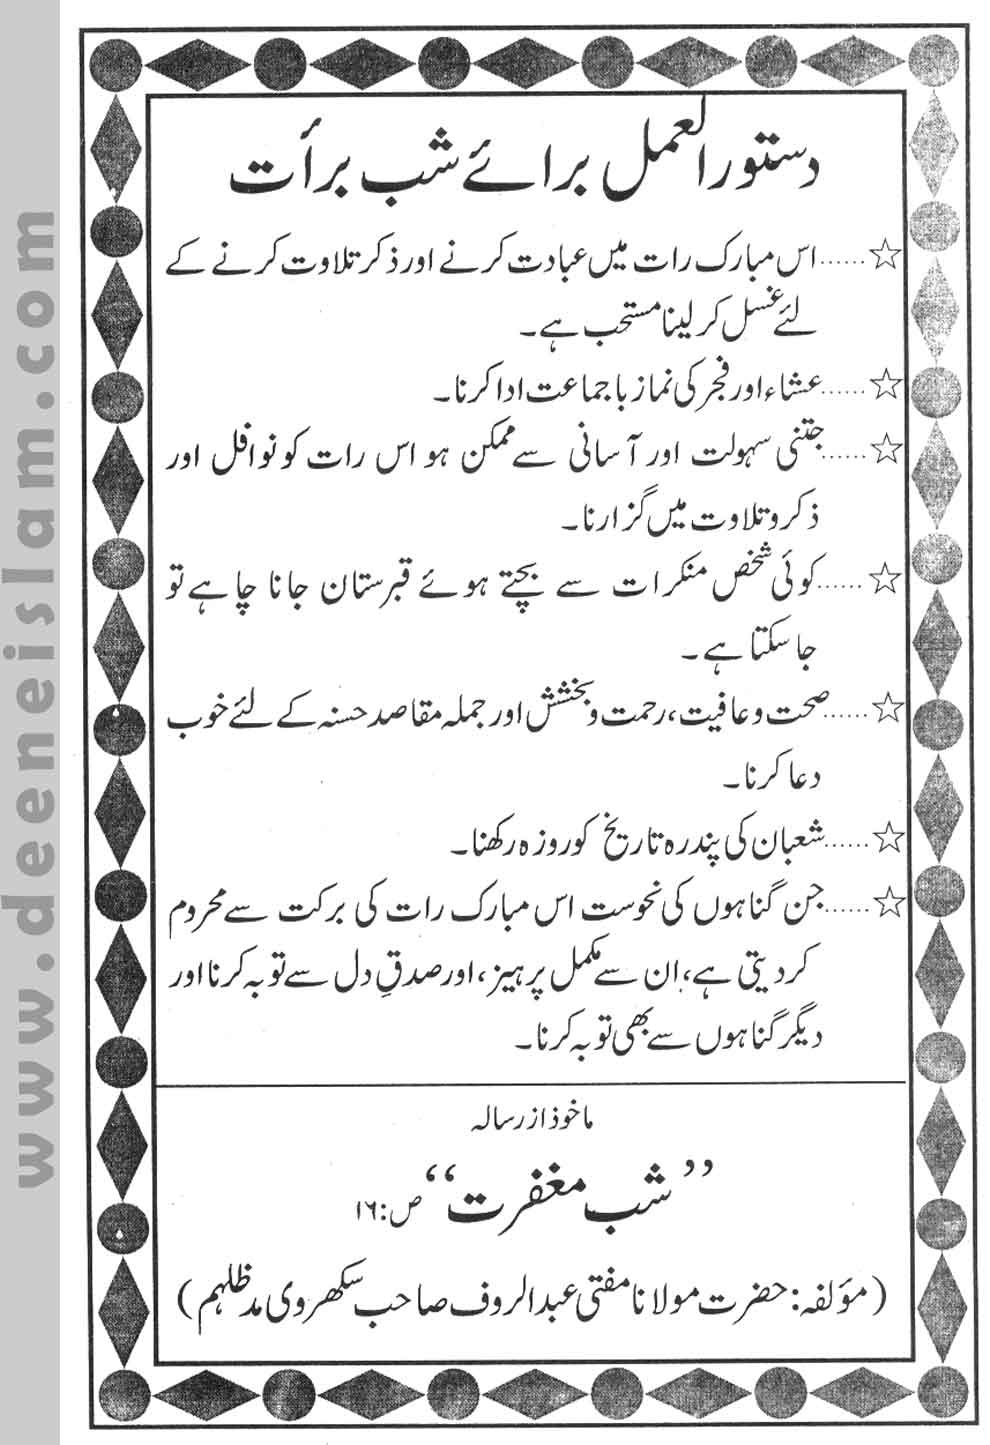 دستورالعمل برائے شب برأت
☆......اس مبارک رات میں عبادت کرنے اور ذکر تلاوت کرنے کے
لئے غسل کر لینا مستحب ہے۔
☆......عشاء اور فجر کی نماز با جماعت ادا کرنا۔
☆......جتنی سہولت اور آسانی سے ممکن ہو اس رات کو نوافل اور
ذکر و تلاوت میں گزارنا۔
☆......کوئی شخص منکرات سے بچتے ہوئے قبرستان جانا چاہے تو
جا سکتا ہے۔
☆......صحت و عافیت، رحمت و بخشش اور جملہ مقاصد حسنہ کے لئے خوب
دعا کرنا۔
☆......شعبان کی پندرہ تاریخ کو روزہ رکھنا۔
☆......جن گناہوں کی نحوست اس مبارک رات کی برکت سے محروم
کر دیتی ہے، ان سے مکمل پرہیز، اور صدقِ دل سے توبہ کرنا اور
دیگر گناہوں سے بھی توبہ کرنا۔
ماخوذ از رسالہ
”شب مغفرت“ ص:۱۶
(مؤلفہ: حضرت مولانا مفتی عبدالروف صاحب سکھروی مدظلہم)
www.deeneislam.com